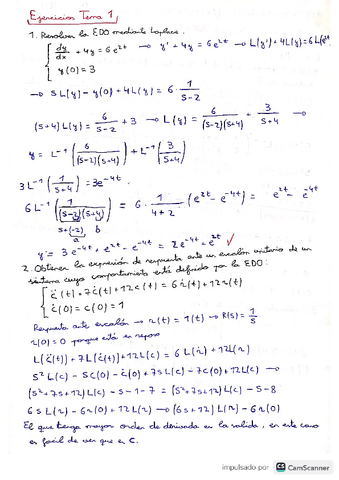 Ejercicios Tema 1
1. Resolver la EDO mediante Laplace.
{ dy/dx + 4y = 6e^2t → y' + 4y = 6e^2t → L(y') + 4L(y) = 6L(e^2t)
y(0) = 3
→ s L(y) - y(0) + 4L(y) = 6 · 1/(s-2)
(s+4) L(y) = 6/(s-2) + 3 → L(y) = 6/((s-2)(s+4)) + 3/(s+4) →
y = L^-1 (6/((s-2)(s+4))) + L^-1 (3/(s+4))
3L^-1 (1/(s+4)) = 3e^-4t
6L^-1 (1/((s-2)(s+4))) = 6 · 1/(4+2) (e^2t - e^-4t) = e^2t - e^-4t
s+(-2) b
a
y = 3e^-4t + e^2t - e^-4t = 2e^-4t + e^2t ✓
2. Obtener la expresión de respuesta ante un escalón unitario de un
sistema cuyo comportamiento está definido por la EDO:
{ c̈(t) + 7ċ(t) + 12c(t) = 6ṙ(t) + 12r(t)
ċ(0) = c(0) = 1
Respuesta ante escalón → r(t) = 1(t) → R(s) = 1/s
r(0) = 0 porque está en reposo
L(c̈(t)) + 7L(ċ(t)) + 12L(c) = 6L(ṙ) + 12L(r)
s² L(c) - sc(0) - ċ(0) + 7sL(c) - 7c(0) + 12L(c) →
(s² + 7s + 12) L(c) - s - 1 - 7 = (s² + 7s + 12) L(c) - s - 8
6s L(r) - 6r(0) + 12L(r) → (6s + 12) L(r) - 6r(0)
El que tenga mayor orden de derivada es la salida, en este caso
es fácil de ver que es C.
impulsado por CS CamScanner